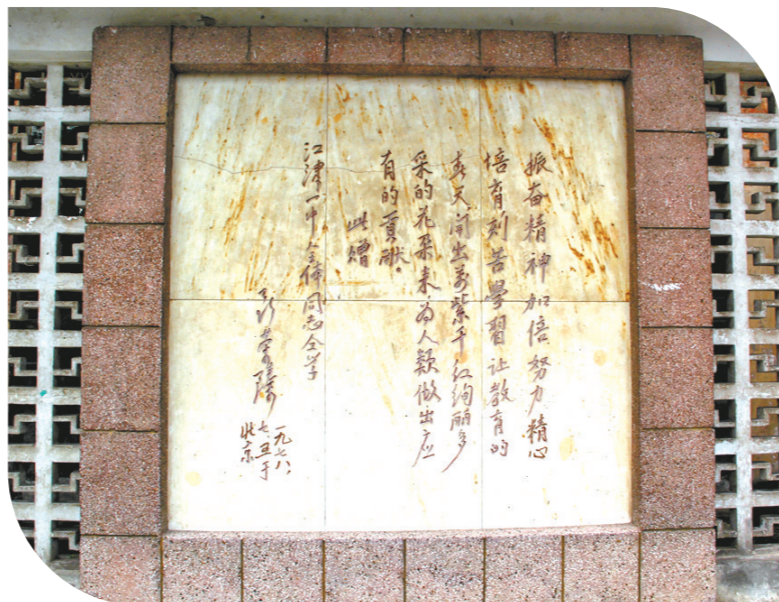 振奋精神加倍努力精心
培育刻苦學習让教育的
春天開出万紫千红绚丽多
采的花朵来为人類做出应
有的貢献。
此赠
江津一中全体同志仝学
聂荣臻
一九七八、
七、五于
北京